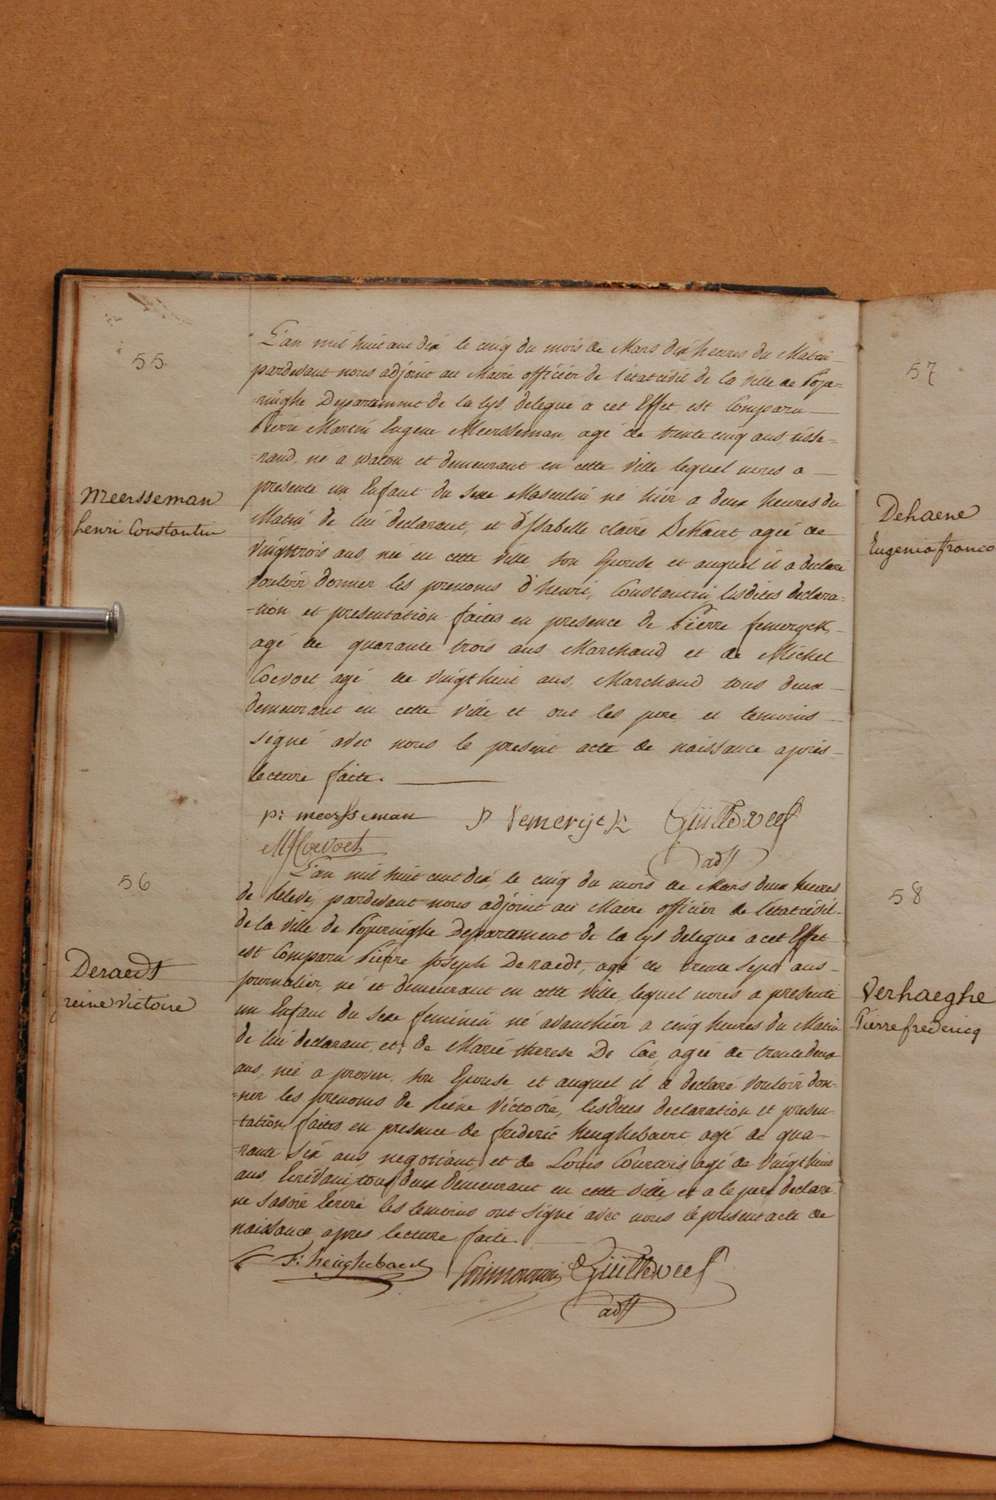 55
Meersseman
henri Constantin
L'an mil huit cent dix le cinq du mois de Mars dix heures du Matin
pardevant nous adjoint au Maire officier de l'état civil de la ville de Pope-
ringhe Departement de la Lys delegué a cet Effet est Comparu
Pierre Martin Eugene Meersseman, agé de trente cinq ans tisse-
rand, né a Watou et demeurant en cette ville lequel nous a
presenté un Enfant du sexe Masculin né hier a deux heures du
Matin de lui declarant, et d'Isabelle Claire agée de
vingt trois ans, née en cette ville son Epouse et auquel il a declaré
vouloir donner les prenoms d'henri, Constantin, lesdites declara-
tion et presentation faites en presence de Pierre femeryck
agé de quarante trois ans Marchand et de Michel
Coevoet agé de vingt huit ans, Marchand tous deux
demeurant en cette ville et ont les pere et temoins
signé avec nous le present acte de naissance après
lecture faite.
p: meersseman P femeryck
MJ Coevoet
adjt
56
Deraedt
reine victoire
L'an mil huit cent dix le cinq du mois de Mars deux heures
de relevé, pardevant nous adjoint au Maire officier de l'état civil
de la ville de Poperinghe Departement de la Lys delegué a cet Effet
est Comparu Pierre Joseph De raedt, agé de trente sept ans
journalier, né et demeurant en cette ville, lequel nous a presenté
un Enfant du sexe feminin né avanthier a cinq heures du Matin
de lui declarant, et de Marie therese De Cae, agée de trente deux
ans, née a proven, son Epouse, et auquel il a declaré vouloir don-
ner les prenoms de Reine Victoire, lesdites declaration et presen-
tation faites en presence de frederic heughebaert agé de qua-
rante six ans negotiant et de Louis agé de vingt huit
ans Ecrivain, tous deux demeurant en cette ville et a le pere declaré
ne savoir Ecrire les temoins ont signé avec nous le present acte de
naissance, apres lecture faite.
F: heughebaert
adjt
57
Dehaene
Eugenia franco
58
Verhaeghe
Pierre fredericq